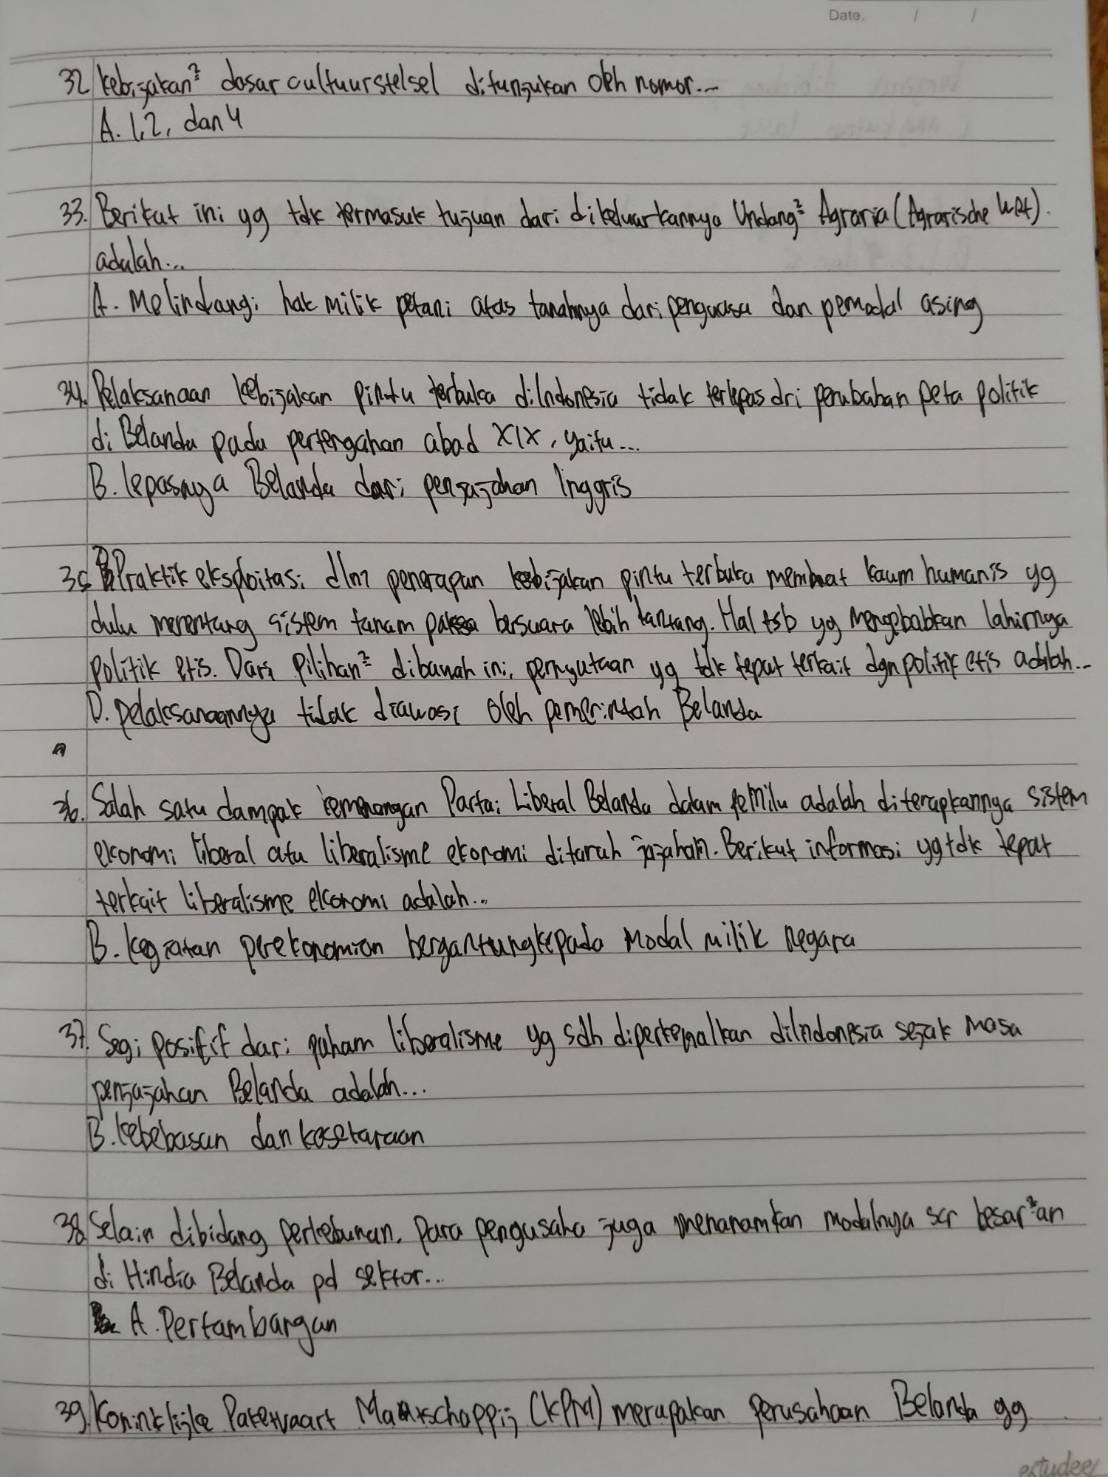 Date. / /
32 kebijakan² dasar cultuurstelsel ditunjukan oleh nomor...
A. 1,2, dan 4
33. Berikut ini yg tdk termasuk tujuan dari dikeluarkannya Undang² Agraria (Agrarische Wet).
adalah...
A. Melindungi hak milik petani atas tanahnya dari penguasa dan pemodal asing
34. Pelaksanaan kebijakan pintu terbuka diIndonesia tidak terlepas dri perubahan peta politik
di Belanda pada pertengahan abad XIX, yaitu...
B. lepasnya Belanda dari penjajahan Inggris
35 Praktik eksploitasi dlm penerapan kebijakan pintu terbuka membuat kaum humanis yg
dulu menentang sistem tanam paksa bersuara lebih lantang. Hal tsb yg menyebabkan lahirnya
politik etis. Dari pilihan² dibawah ini, pernyataan yg tdk tepat terkait dgn politik etis adalah...
D. pelaksanaannya tidak diawasi oleh pemerintah Belanda
36. Salah satu dampak kemenangan Partai Liberal Belanda dalam pemilu adalah diterapkannya sistem
ekonomi liberal atau liberalisme ekonomi ditanah jajahan. Berikut informasi yg tdk tepat
terkait liberalisme ekonomi adalah...
B. kegiatan perekonomian bergantung kepada modal milik negara
37. Segi positif dari paham liberalisme yg sdh diperkenalkan diIndonesia sejak masa
penjajahan Belanda adalah...
B. kebebasan dan kesetaraan
38 Selain dibidang perkebunan, para pengusaha juga menanamkan modalnya scr besar²an
di Hindia Belanda pd sektor...
A. Pertambangan
39. Koninklijke Paketvaart Maatschappij (KPM) merupakan perusahaan Belanda yg